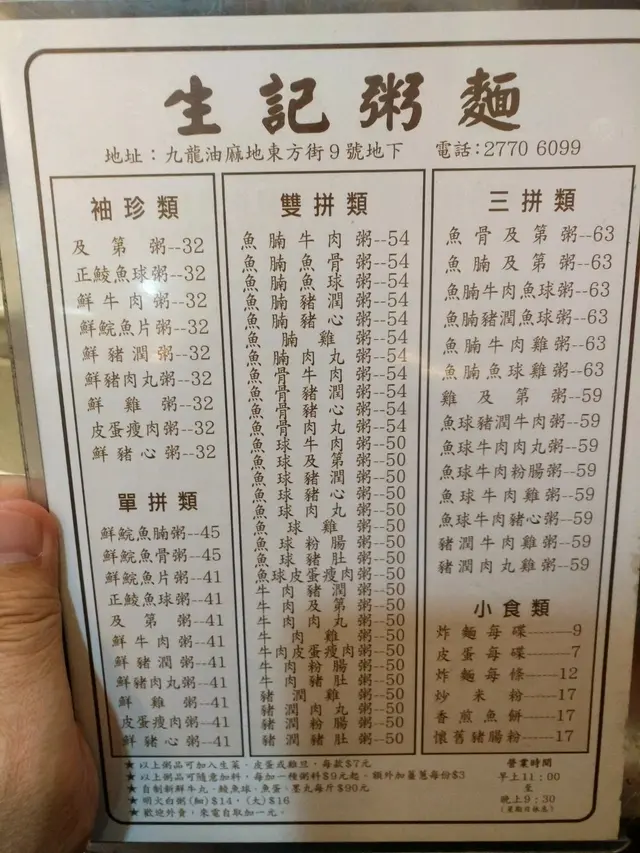 生記粥麵
地址：九龍油麻地東方街9號地下 電話:2770 6099
袖珍類
及第粥--32
正鯪魚球粥--32
鮮牛肉粥--32
鮮鯇魚片粥--32
鮮豬潤粥--32
鮮豬肉丸粥--32
鮮雞粥--32
皮蛋瘦肉粥--32
鮮豬心粥--32
單拼類
鮮鯇魚腩粥--45
鮮鯇魚骨粥--45
鮮鯇魚片粥--41
正鯪魚球粥--41
及第粥--41
鮮牛肉粥--41
鮮豬潤粥--41
鮮豬肉丸粥--41
鮮雞粥--41
皮蛋瘦肉粥--41
鮮豬心粥--41
雙拼類
魚腩牛肉粥--54
魚腩魚骨粥--54
魚腩魚球粥--54
魚腩豬潤粥--54
魚腩豬心粥--54
魚腩雞粥--54
魚腩肉丸粥--54
魚骨牛肉粥--54
魚骨豬潤粥--54
魚骨豬心粥--54
魚骨肉丸粥--54
魚球牛肉粥--50
魚球及第粥--50
魚球豬潤粥--50
魚球豬心粥--50
魚球肉丸粥--50
魚球雞粥--50
魚球粉腸粥--50
魚球豬肚粥--50
魚球皮蛋瘦肉粥--50
牛肉豬潤粥--50
牛肉及第粥--50
牛肉肉丸粥--50
牛肉雞粥--50
牛肉皮蛋瘦肉粥--50
牛肉粉腸粥--50
牛肉豬肚粥--50
豬潤雞粥--50
豬潤肉丸粥--50
豬潤粉腸粥--50
豬潤豬肚粥--50
三拼類
魚骨及第粥--63
魚腩及第粥--63
魚腩牛肉魚球粥--63
魚腩豬潤魚球粥--63
魚腩牛肉雞粥--63
魚腩魚球雞粥--63
雞及第粥--59
魚球豬潤牛肉粥--59
魚球牛肉肉丸粥--59
魚球牛肉粉腸粥--59
魚球牛肉雞粥--59
魚球牛肉豬心粥--59
豬潤牛肉雞粥--59
豬潤肉丸雞粥--59
小食類
炸麵每碟------9
皮蛋每碟------7
炸麵每條------12
炒米粉----17
香煎魚餅----17
懷舊豬腸粉----17
★以上粥品可加入生菜、皮蛋或雞旦，每款$7元
★以上粥品可隨意加料，每加一種粥料$9元起。額外加薑蔥每份$3
★自制新鮮牛丸、鯪魚球、魚蛋、墨丸每斤$90元
★明火白粥(細)$14，(大)$16
★歡迎外賣，來電自取加一元。
營業時間
早上11：00
至
晚上9：30
(星期日休息)